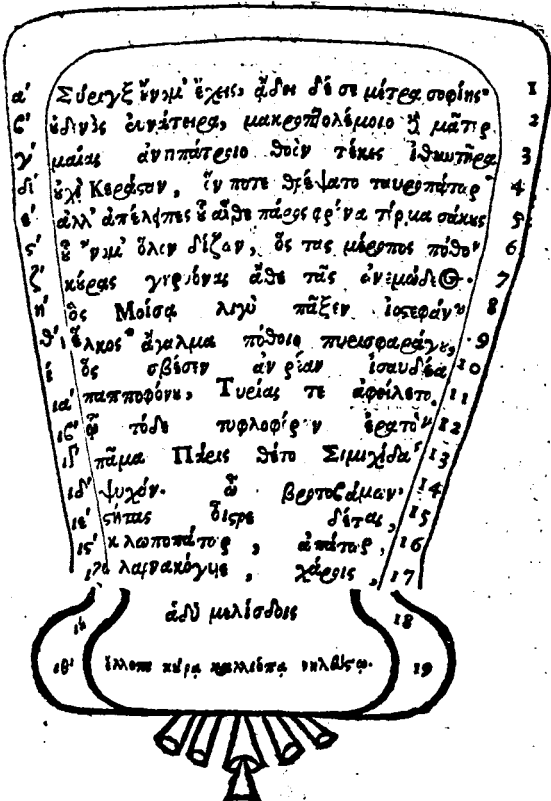 α' Σύριγξ οὔνομ' ἔχεις, ᾄδει δέ σε μέτρα σοφίης· 1
ϛ' οὐδενὸς εὐνάτειρα, μακροπτολέμοιο δὲ μᾶτερ 2
γ' μαίας ἀντιπάτροιο θοὸν τέκες ἰθυντῆρα 3
δ' οὐχὶ Κεράσταν, ὅν ποτε θρέψατο ταυροπάτωρ 4
ε' ἀλλ' ἀπέλειπες οὗ αἶθε πάρος φρένα τέρμα σάκους 5
ϛ' οὗ οὔνομ' ὅλον δίζων, ὃς τᾶς μέροπος πόθον 6
ζ' κούρας γηρυόνας ἄθε τᾶς ἀνεμώδεος· 7
η' ὃς Μοίσᾳ λιγὺ πᾶξεν ἰοστεφάνου 8
θ' ἕλκος ἄγαλμα πόθοιο πυρισφαράγου, 9
ι' ὃς σβέσεν ἀνορέαν ἰσαυδέα 10
ια' παπποφόνου, Τυρίας τε ἀφείλετο. 11
ιϛ' ᾧ τόδε τυφλοφόρων ἐρατὸν 12
ιγ' πᾶμα Πάρις θέτο Σιμιχίδας 13
ιδ' ψυχάν. ὦ βροτοβάμων· 14
ιε' στήτας οἶστρε δέτας, 15
ιϛ' κλωποπάτωρ, ἀπάτωρ, 16
ιζ' λαρνακόγυιε, χάροις, 17
ιη' ἁδὺ μελίσδοις 18
ιθ' ἔλλοπι κούρᾳ καλλιόπᾳ νηλεύστῳ. 19